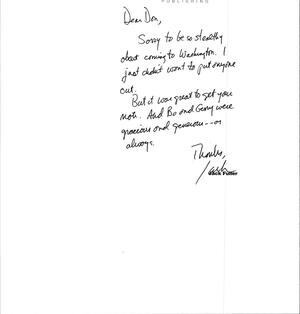 PUBLISHING
Dear Don,
Sorry to be so stealthy
about coming to Washington. I
just didn't want to put anyone
out.
But it was great to get your
note. And Bo and Gerry were
gracious and generous -- as
always.
Thanks,
Jack
Jack Fuller